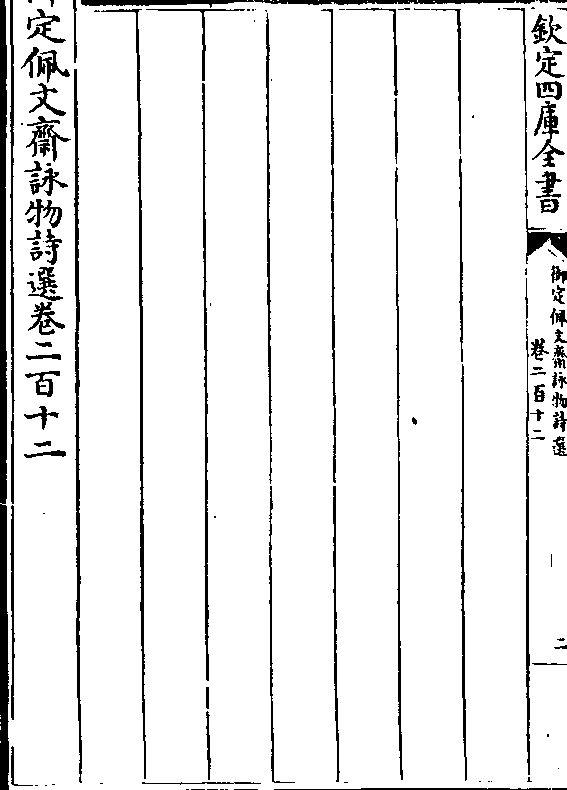 欽定四庫全書
御定佩文齋詠物詩選
卷二百十二
二
定佩文齋詠物詩選卷二百十二